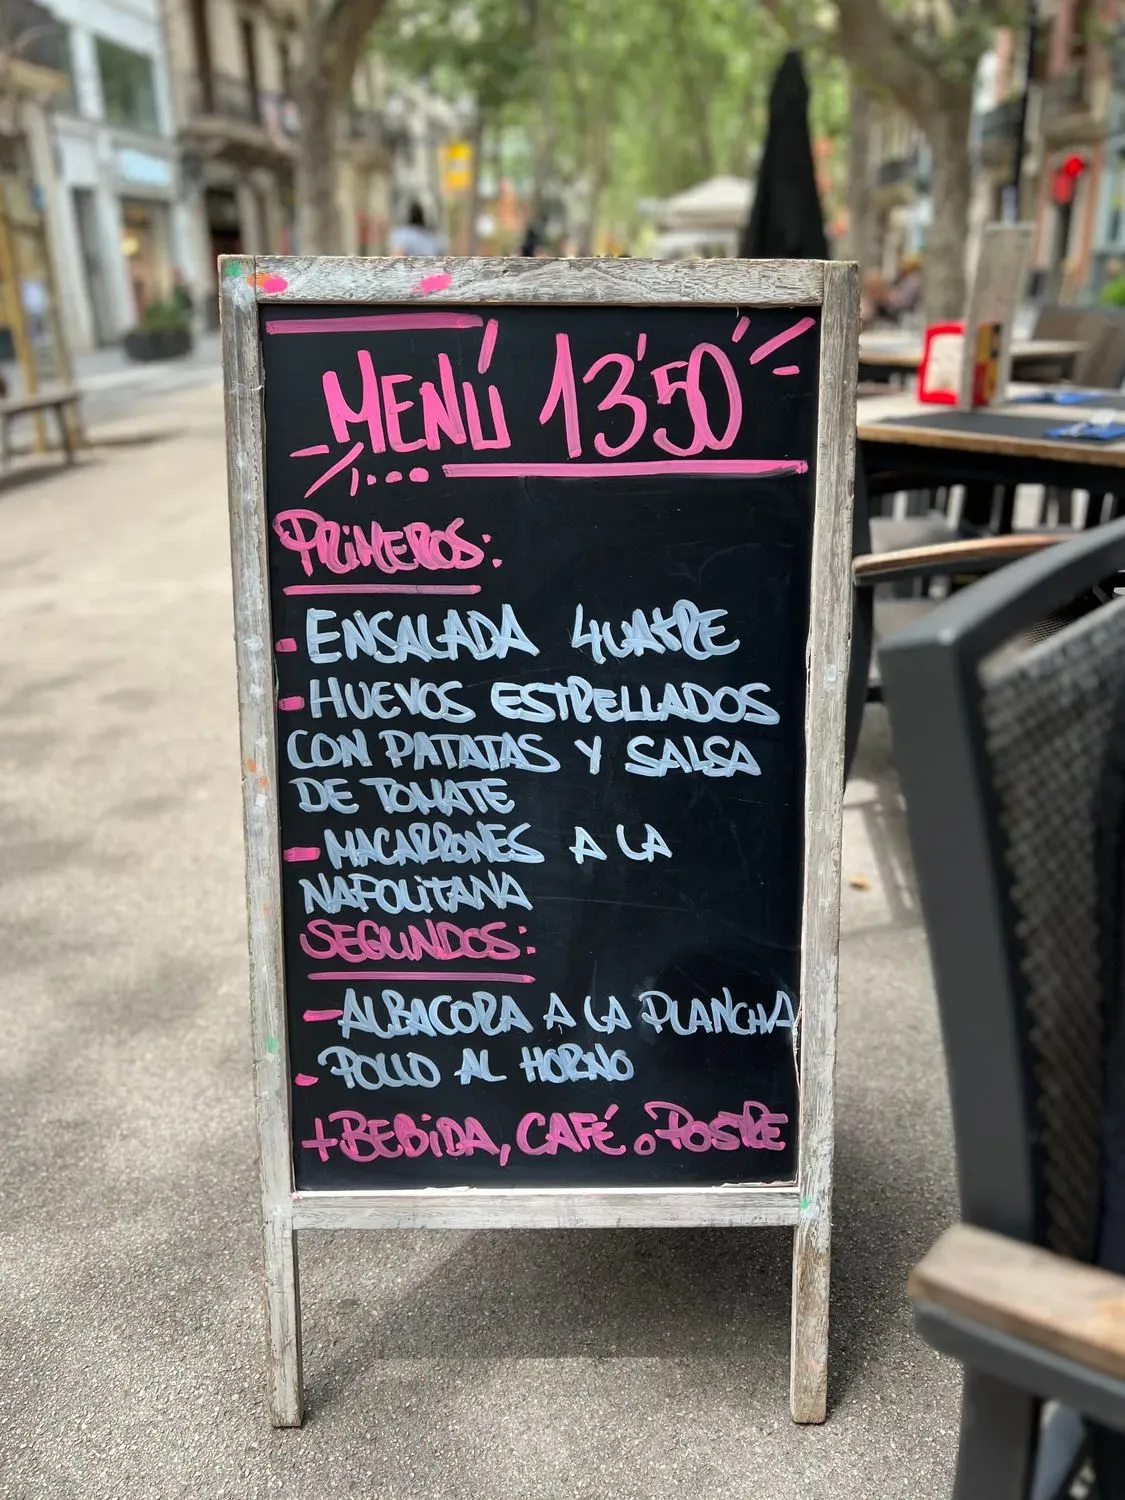 MENÚ 13'50
PRIMEROS:
- ENSALADA 4UATRE
- HUEVOS ESTRELLADOS
CON PATATAS Y SALSA
DE TOMATE
- MACARRONES A LA
NAPOLITANA
SEGUNDOS:
- ALBACORA A LA PLANCHA
- POLLO AL HORNO
+ BEBIDA, CAFÉ o POSTRE